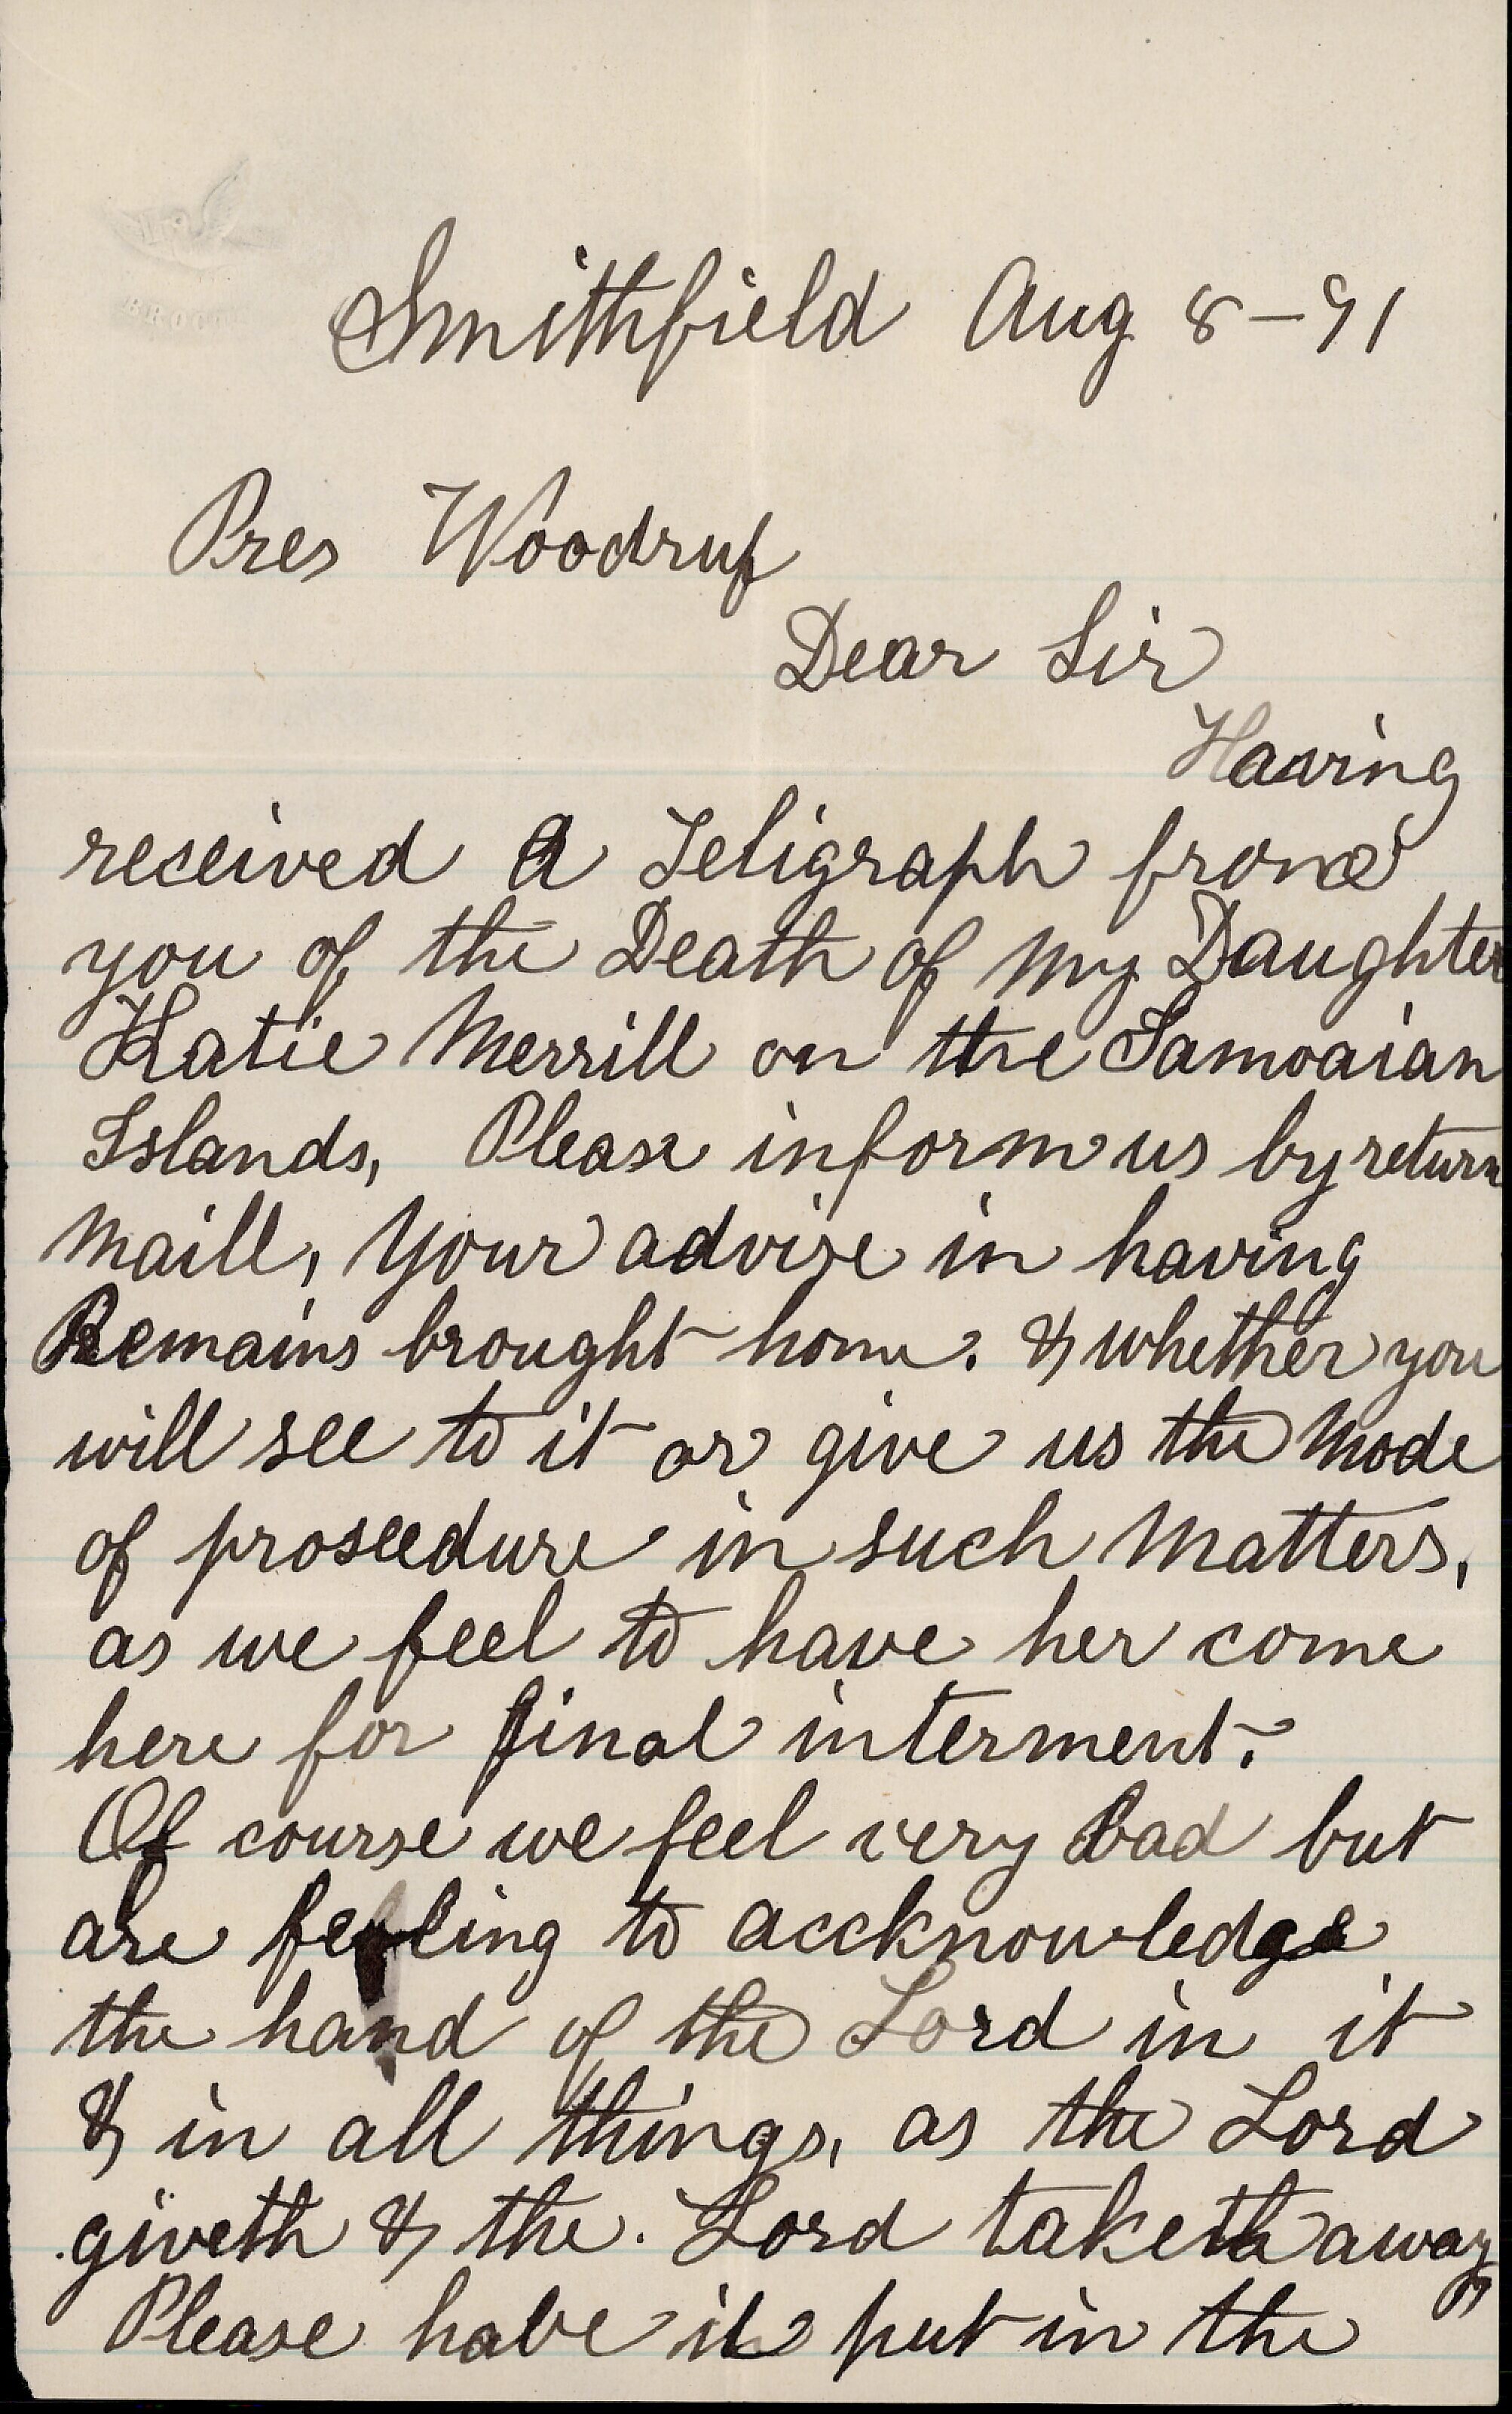 Smithfield Aug 8-91
Pres Woodruf
Dear Sir
Having
received a Teligraph from
you of the Death of my Daughter
Katie Merrill on the Samoaian
Islands, Please inform us by return
Maill, Your advise in having
Remains brought home. & whether you
will see to it or give us the Mode
of proseedure in such Matters,
as we feel to have her come
here for final interment.
Of course we feel very bad but
are feeling to accknowledge
the hand of the Lord in it
& in all things, as the Lord
giveth & the. Lord taketh away
Please have it put in the